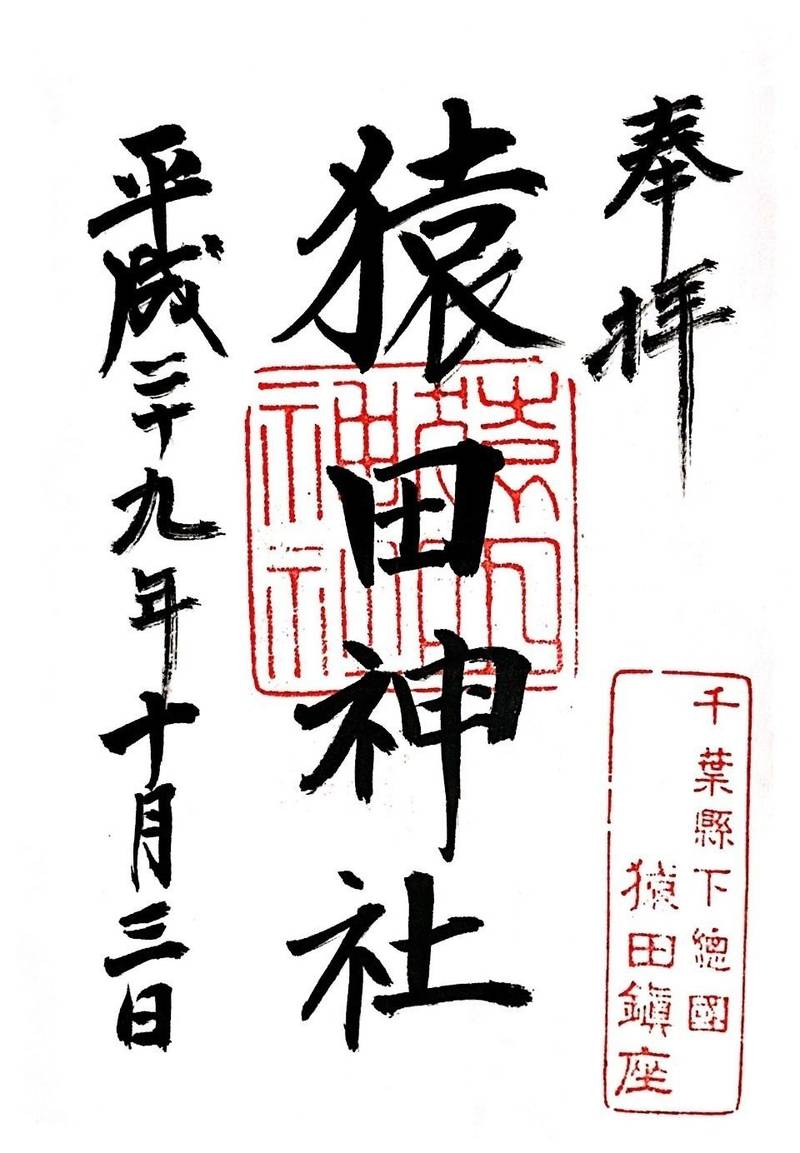 奉拝
千葉縣下總國
猿田鎭座
猿田神社
猿田
神社
平成二十九年十月三日